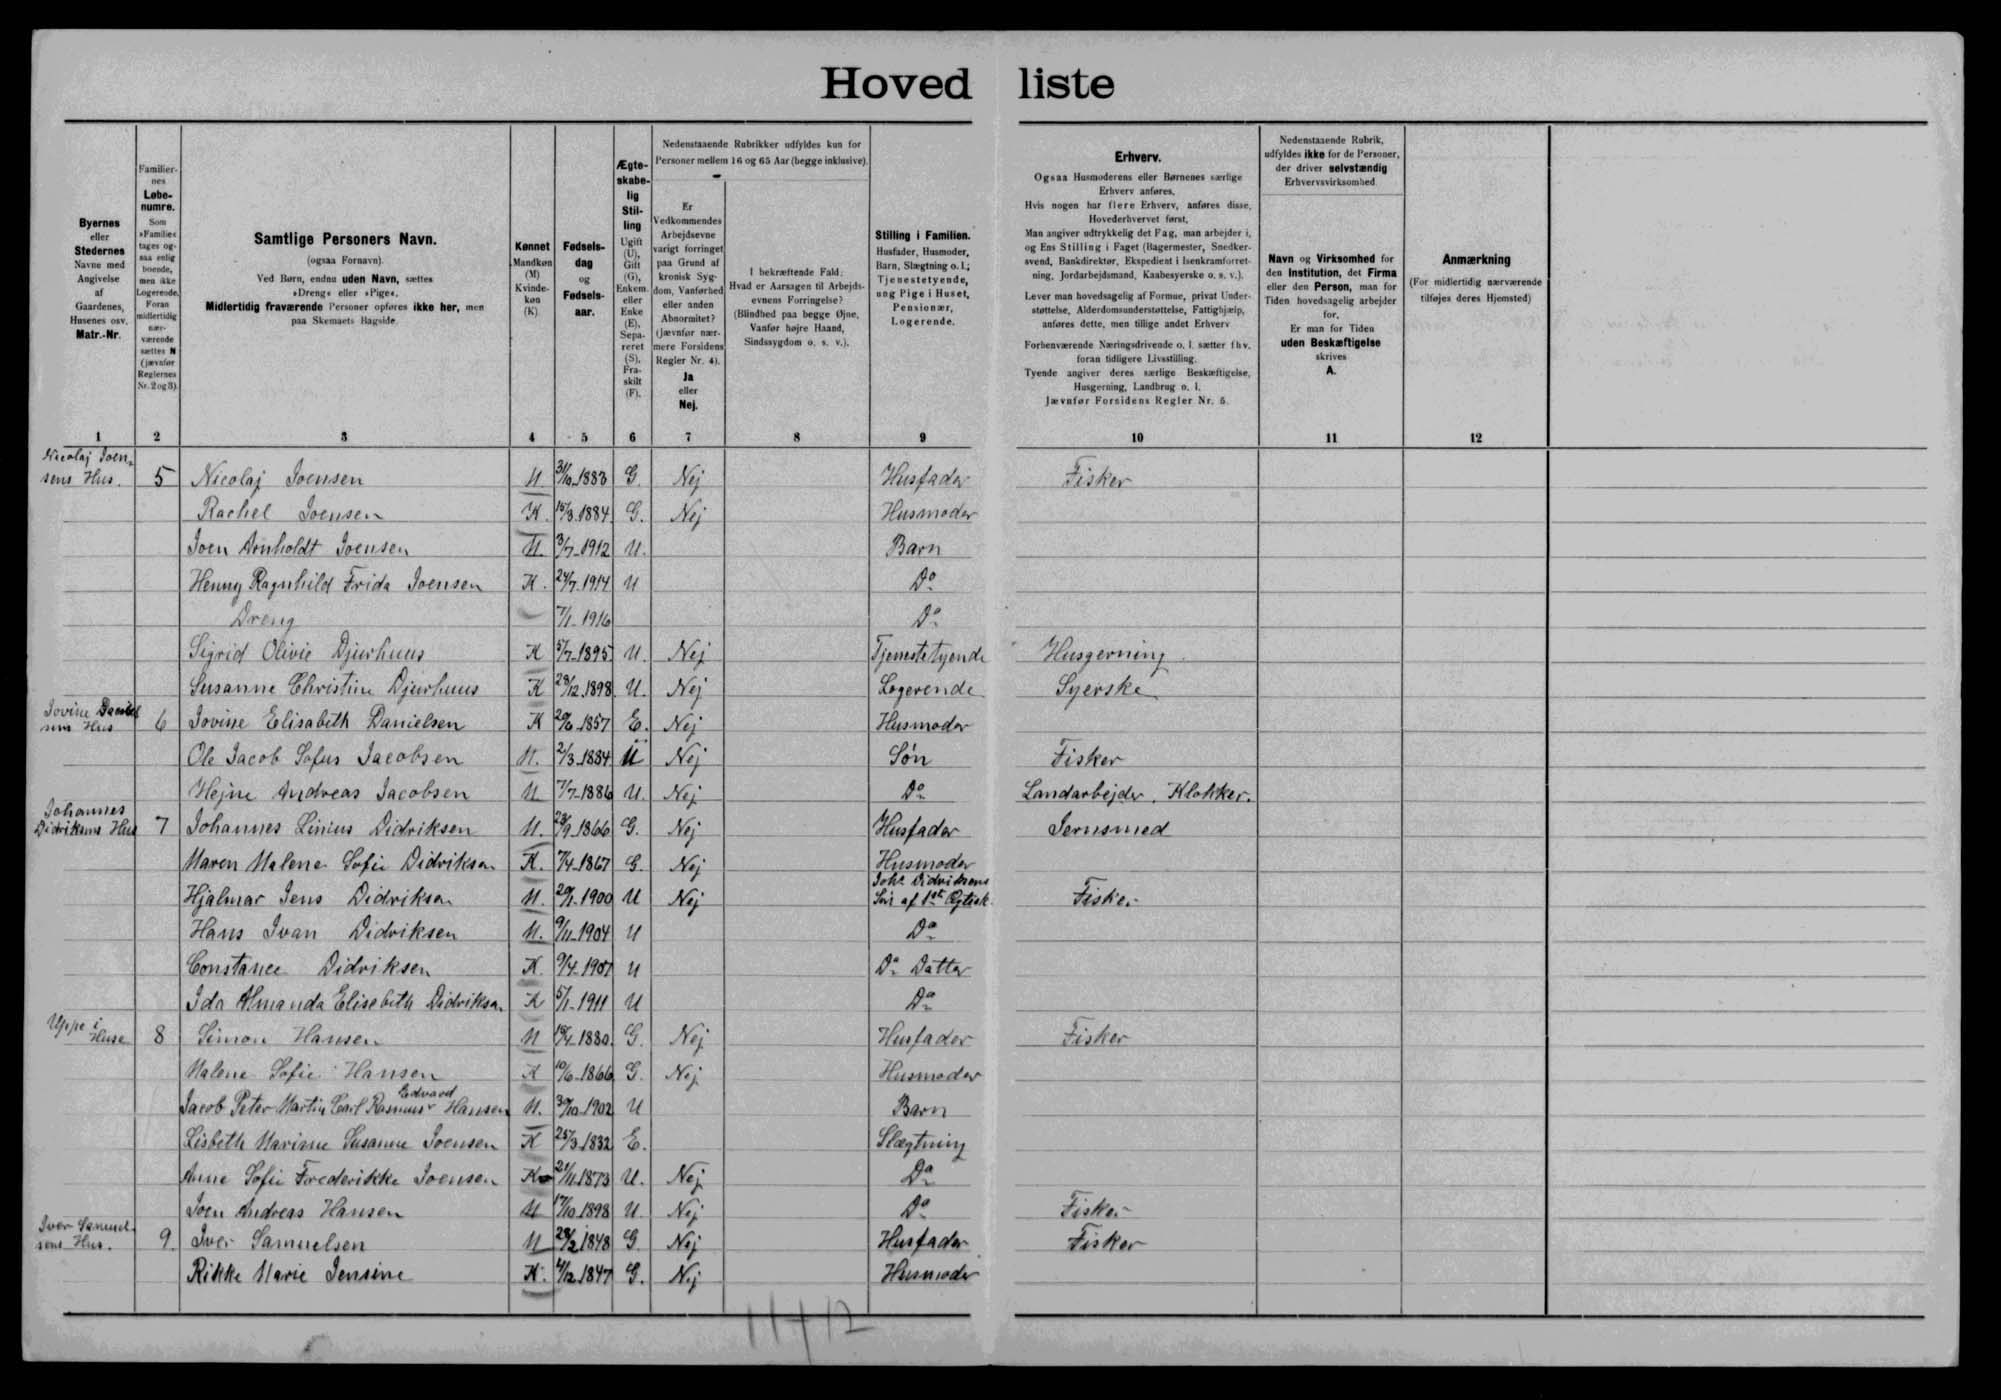 Hoved liste
Byernes
eller
Stedernes
Navne med
Angivelse
af
Gaardenes,
Husenes osv.
Matr.-Nr.
Familier-
nes
Løbe-
numre.
Som
»Familie«
tages og-
saa enlig
boende,
men ikke
Logerende.
Foran
midlertidig
nær-
værende
sættes N
(jævnfør
Reglernes
Nr. 2 og 3).
Samtlige Personers Navn.
(ogsaa Fornavn).
Ved Børn, endnu uden Navn, sættes
»Dreng« eller »Pige«.
Midlertidig fraværende Personer opføres ikke her, men
paa Skemaets Bagside.
Kønnet
Mandkøn
(M)
Kvinde-
køn
(K).
Fødsels-
dag
og
Fødsels-
aar.
Ægte-
skabe-
lig
Stil-
ling
Ugift
(U),
Gift
(G),
Enkem.
eller
Enke
(E),
Sepa-
reret
(S),
Fra-
skilt
(F).
Nedenstaaende Rubrikker udfyldes kun for
Personer mellem 16 og 65 Aar (begge inklusive).
Er
Vedkommendes
Arbejdsevne
varigt forringet
paa Grund af
kronisk Syg-
dom, Vanførhed
eller anden
Abnormitet?
(Jævnfør nær-
mere Forsidens
Regler Nr. 4).
Ja
eller
Nej.
I bekræftende Fald:
Hvad er Aarsagen til Arbejds-
evnens Forringelse?
(Blindhed paa begge Øjne,
Vanfør højre Haand,
Sindssygdom o. s. v.).
Stilling i Familien.
Husfader, Husmoder,
Barn, Slægtning o. l.;
Tjenestetyende,
ung Pige i Huset,
Pensionær,
Logerende.
Erhverv.
Ogsaa Husmoderens eller Børnenes særlige
Erhverv anføres.
Hvis nogen har flere Erhverv, anføres disse,
Hovederhvervet først.
Man anfører udtrykkelig det Fag, man arbejder i,
og Ens Stilling i Faget (Bagermester, Snedker-
svend, Bankdirektør, Ekspedient i Isenkramforret-
ning, Jordarbejdsmand, Kaabesyerske o. s. v.).
Lever man hovedsagelig af Formue, privat Under-
støttelse, Alderdomsunderstøttelse, Fattighjælp,
anføres dette, men tillige andet Erhverv
Forhenværende Næringsdrivende o. l. sætter fhv.
foran tidligere Livsstilling.
Tyende angiver deres særlige Beskæftigelse,
Husgerning, Landbrug o. l.
Jævnfør Forsidens Regler Nr. 5.
Nedenstaaende Rubrik,
udfyldes ikke for de Personer,
der driver selvstændig
Erhvervsvirksomhed
Navn og Virksomhed for
den Institution, det Firma
eller den Person, man for
Tiden hovedsagelig arbejder
for.
Er man for Tiden
uden Beskæftigelse
skrives
A.
Anmærkning
(For midlertidig nærværende
tilføjes deres Hjemsted)
1 2 3 4 5 6 7 8 9 10 11 12
Nicolaj Joen-
sens Hus. 5 Nicolaj Joensen M. 31/10 1883 G. Nej Husfader Fisker
Rachel Joensen K. 15/3 1884 G. Nej Husmoder
Joen Arnholdt Joensen M. 3/7 1912 U. Barn
Henny Ragnhild Frida Joensen K. 24/7 1914 U Do
Dreng 7/1 1916 Do
Sigrid Olivie Djurhuus K 5/7 1895 U. Nej Tjenestetyende Husgerning
Susanne Christine Djurhuus K 28/12 1898 U. Nej Logerende Syerske
Jovine Daniel
sens Hus 6 Jovine Elisabeth Danielsen K 20/6 1857 E. Nej Husmoder
Ole Jacob Sofus Jacobsen M. 2/3 1884 U Nej Søn Fisker
Hejne Andreas Jacobsen M 7/7 1886 U. Nej Do Landarbejder, Klokker.
Johannes
Didriksens Hus 7 Johannes Linius Didriksen M. 28/9 1866 G. Nej Husfader Jernsmed
Maren Malene Sofie Didriksen K. 7/4 1867 G. Nej Husmoder
Johs Didriksens
Hjalmar Jens Didriksen M. 20/1 1900 U Nej Søn af 1st Ægtesk. Fisker
Hans Ivan Didriksen M. 9/11 1904 U Do
Constance Didriksen K. 9/4 1907 U Do Datter
Ida Almanda Elisebeth Didriksen K 5/1 1911 U Do
Uppe i
Huse 8 Simon Hansen M 1880 G. Nej Husfader Fisker
Malene Sofie Hansen K 10/6 1866 G. Nej Husmoder
Jacob Peter Martin Carl Rasmus Edvard Hansen M. 30/10 1902 U Barn
Lisbeth Marine Susanne Joensen K 25/3 1832 E. Slægtning
Anne Sofie Frederikke Joensen K 21/11 1873 U. Nej Do
Joen Andreas Hansen M 17/10 1898 U. Nej Do Fisker
Iver Samuel-
sens Hus. 9. Iver Samuelsen M 28/2 1848 G. Nej Husfader Fisker
Rikke Marie Jensine K. 4/12 1847 G. Nej Husmoder
11 + 12